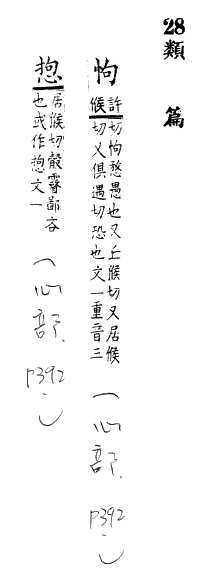 28類篇
怐
許候切怐愗愚也又丘候切又居候
切又俱遇切恐也文一重音三
(心部.p392)
㤱
居候切㲉瞀鄙吝
也或作㤱文一
(心部.p392)